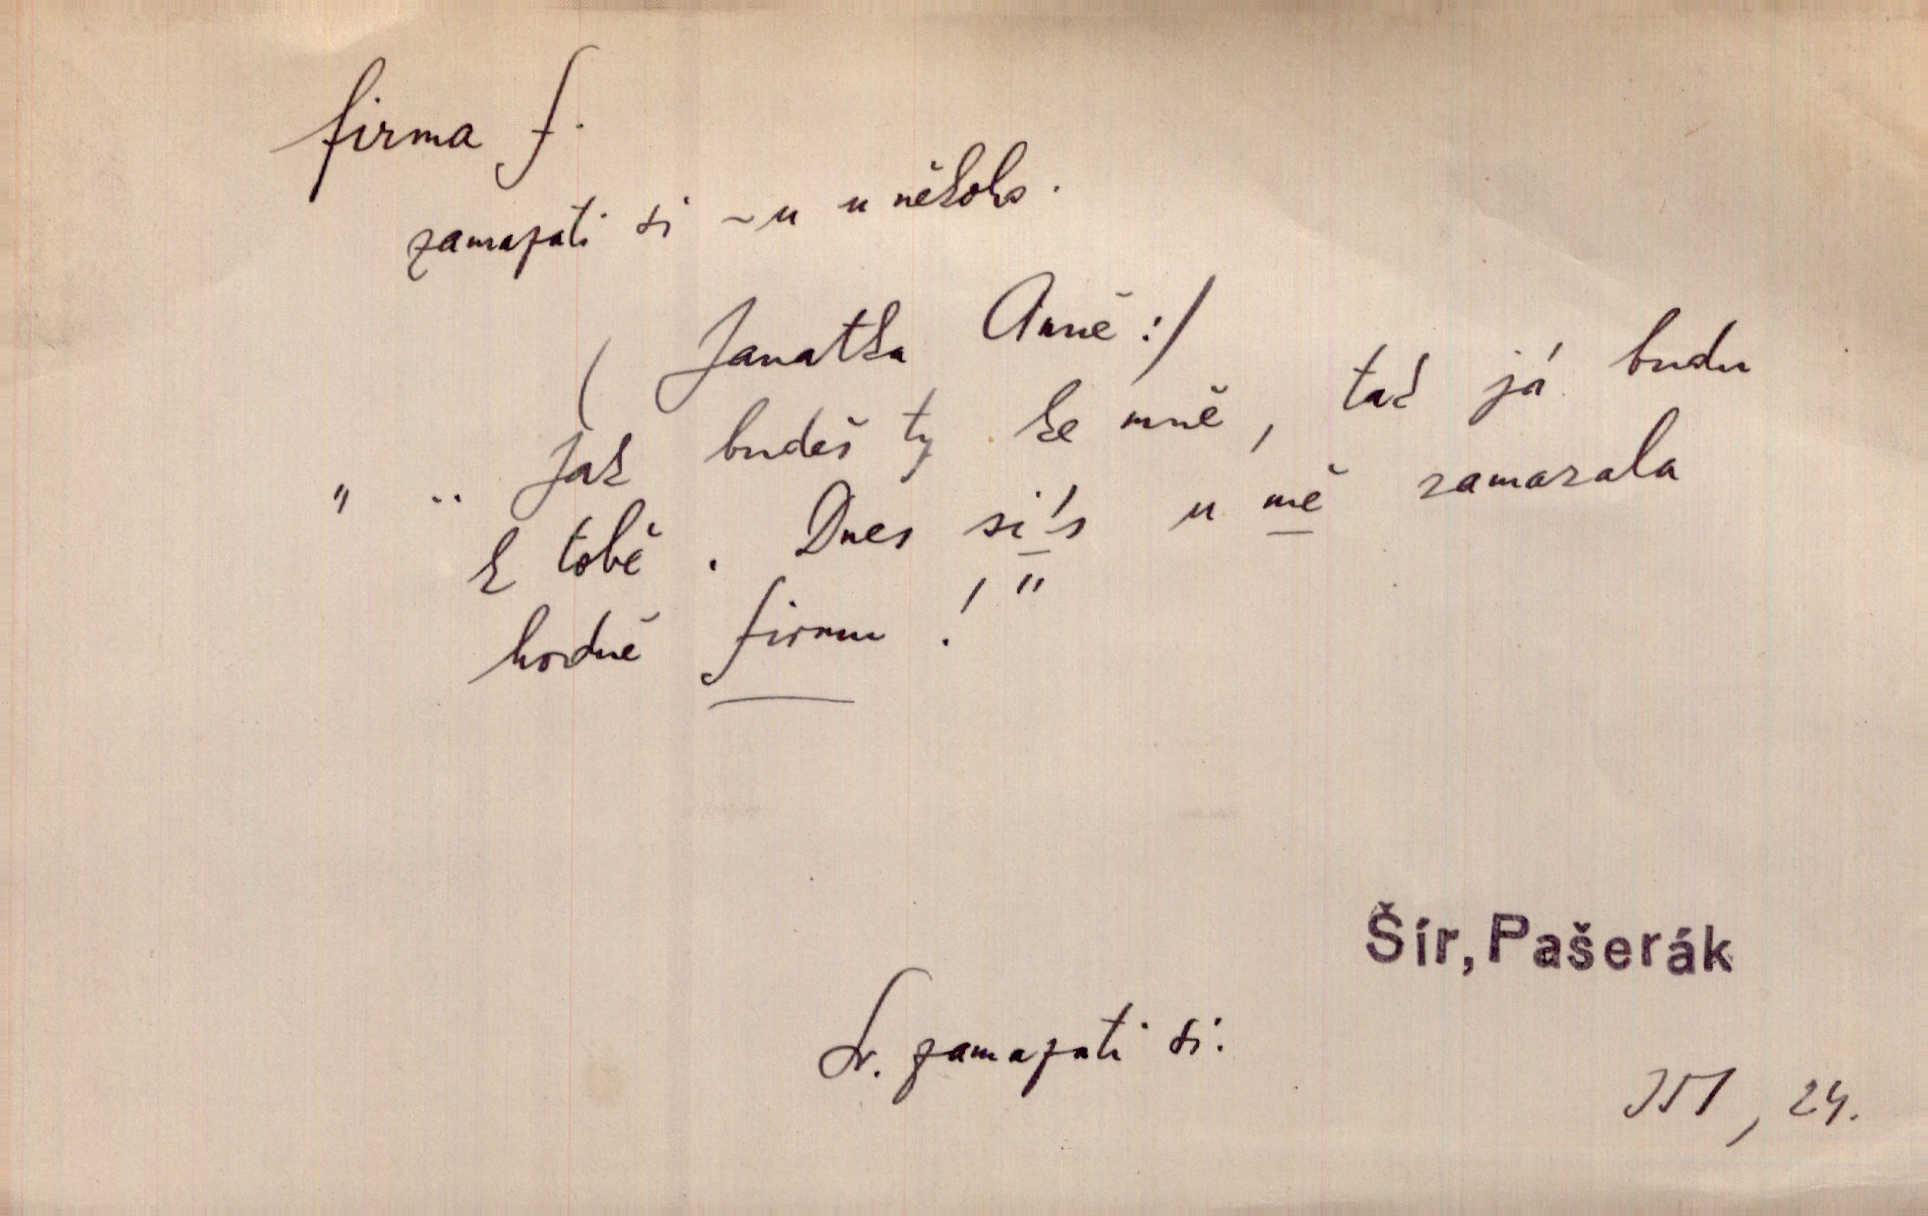 firma f.
zamazati si ~u u někoho.
( Janatka Anně :/
" .. Jak budeš ty ke mně, tak já budu
k tobě. Dnes si's u mě zamazala
hodně firmu ! "
Šír, Pašerák
Sr. zamazati si.
24.